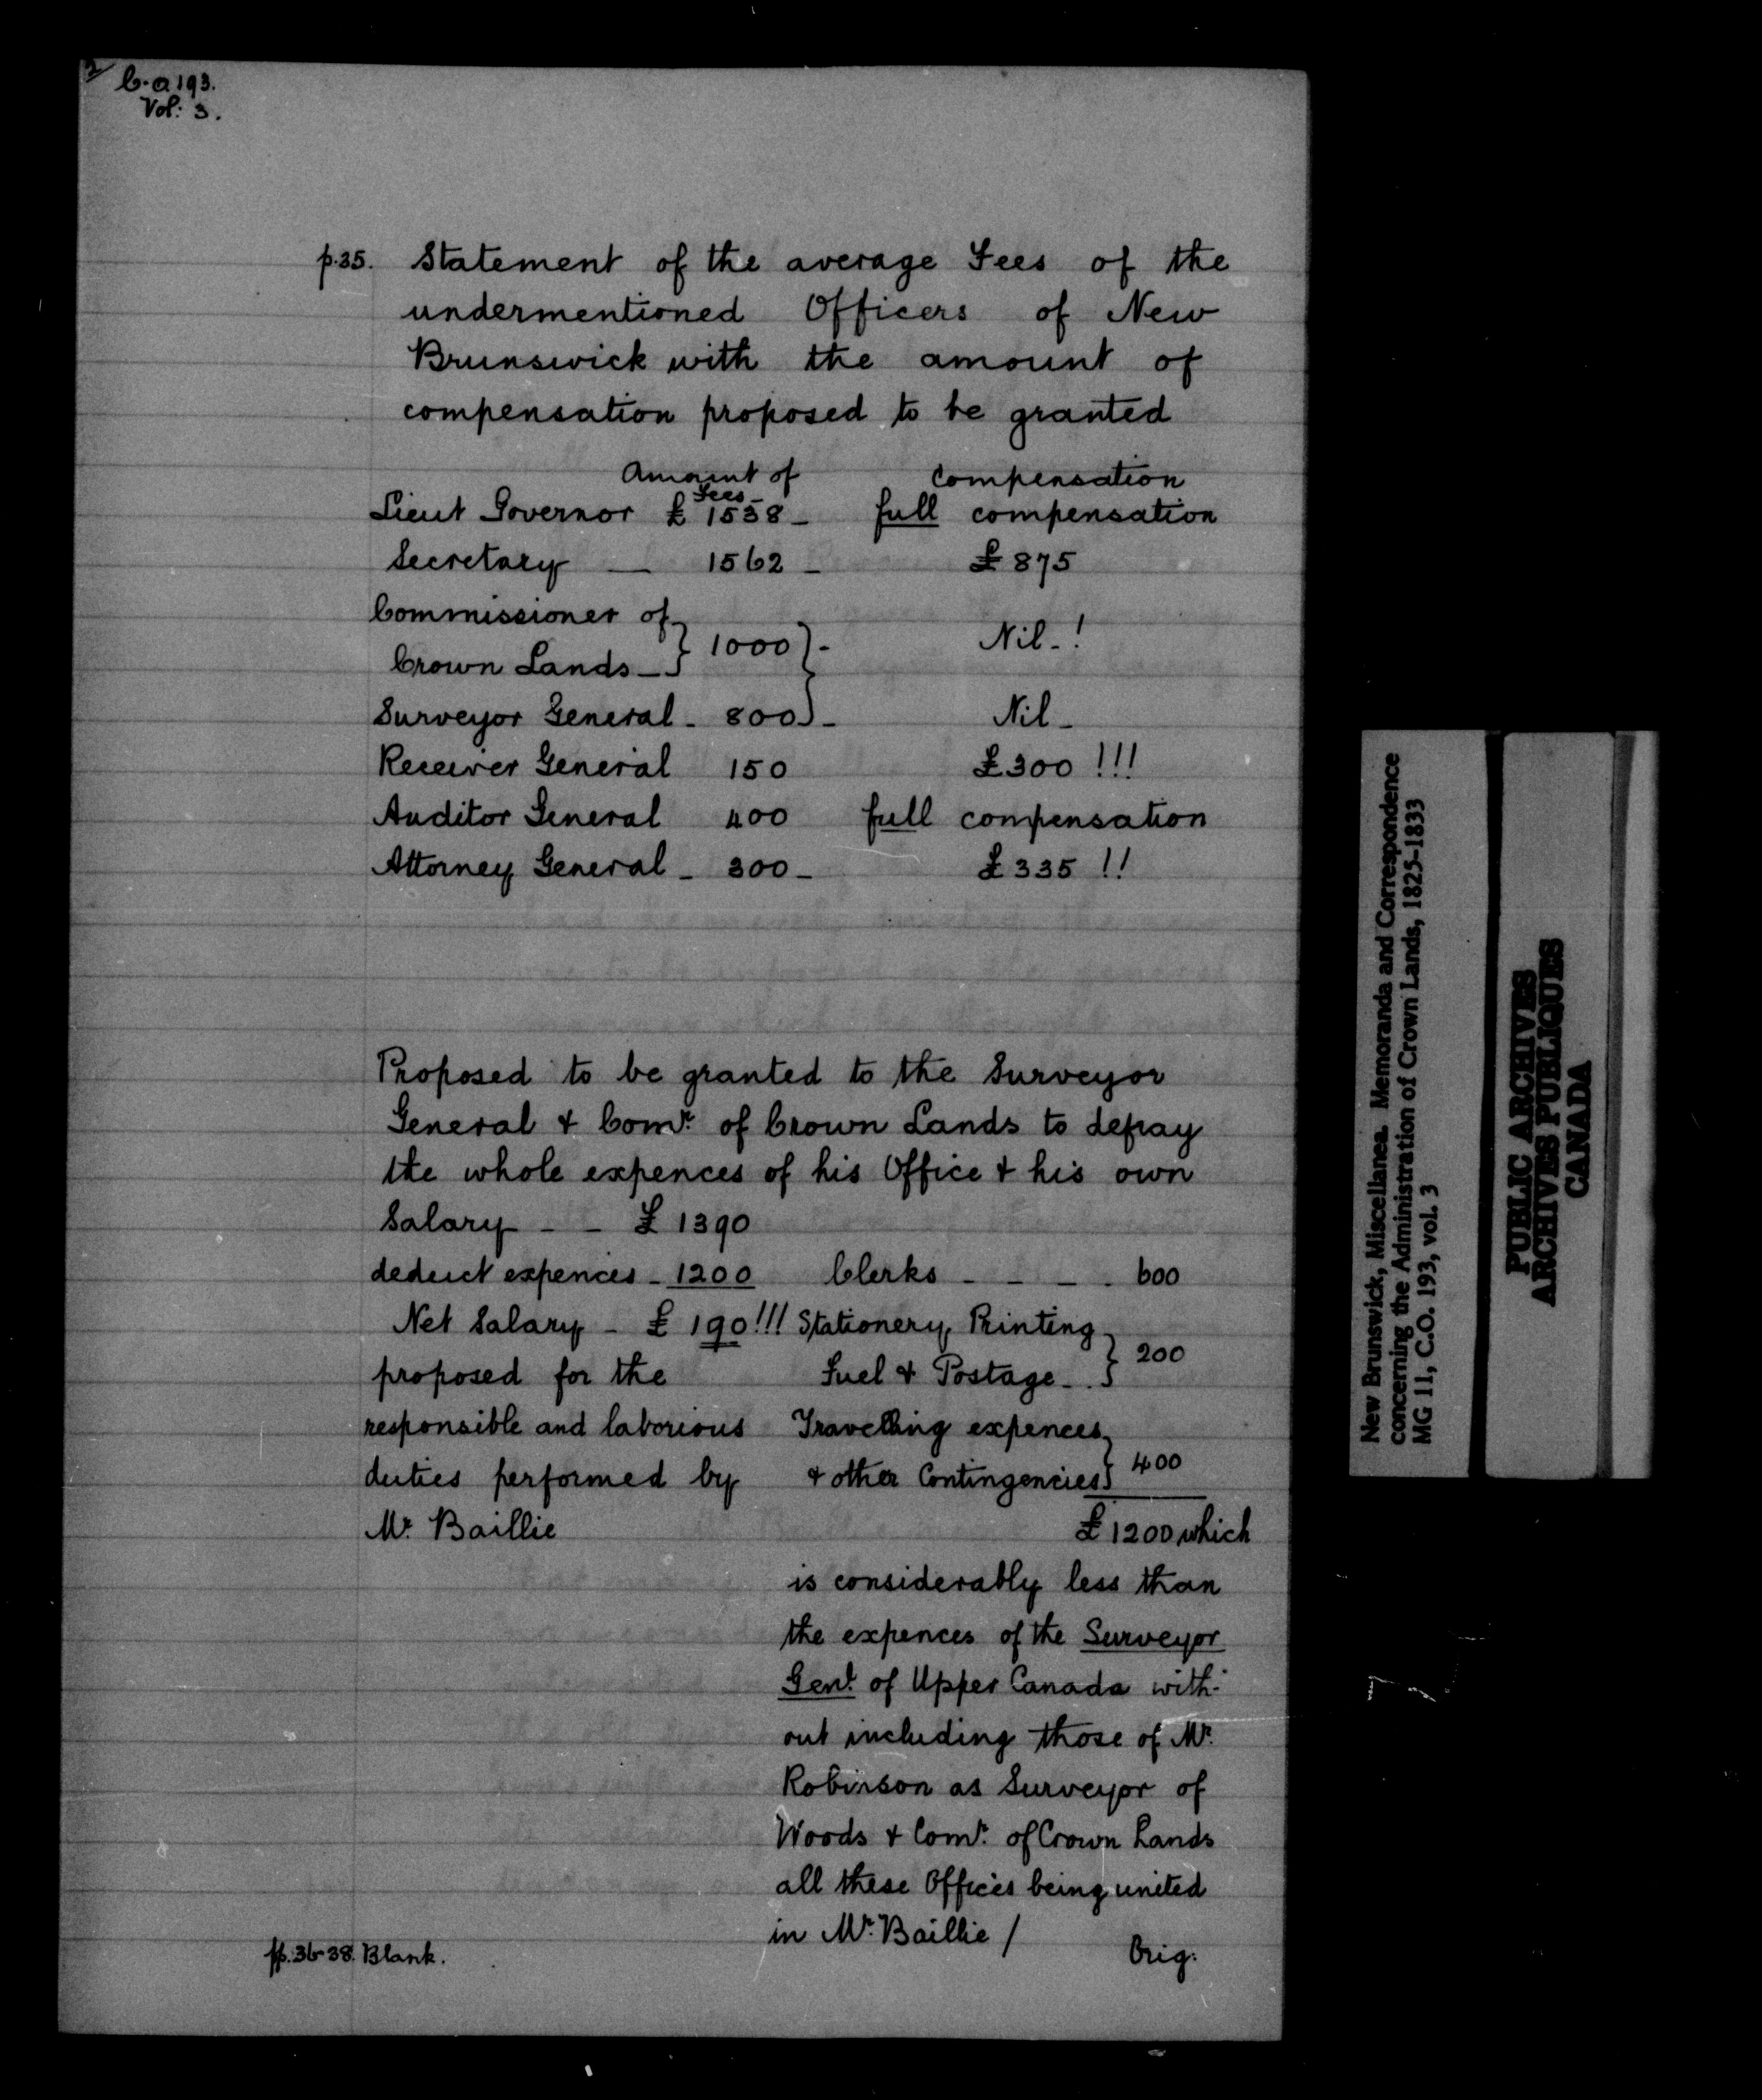 2/ C.O. 193.
Vol: 3.
p.35. Statement of the average Fees of the
undermentioned Officers of New
Brunswick with the amount of
compensation proposed to be granted
Amount of Fees_ Compensation
Lieut Governor £ 1538_ full compensation
Secretary _ 1562_ £875
Commissioner of
Crown Lands_ } 1000 }- Nil_!
Surveyor General_ 800 }_ Nil_
Receiver General 150 £300 !!!
Auditor General 400 full compensation
Attorney General_ 300_ £335 !!
Proposed to be granted to the Surveyor
General & Comr. of Crown Lands to defray
the whole expences of his Office & his own
Salary _ _ £ 1390
deduct expences_ 1200 Clerks _ _ _ . 600
Net Salary _ £ 190!!! Stationery, Printing
proposed for the Fuel & Postage_ . } 200
responsible and laborious Travelling expences
duties performed by & other Contingencies } 400
Mr. Baillie £1200 which
is considerably less than
the expences of the Surveyor
Genl. of Upper Canada with-
out including those of Mr.
Robinson as Surveyor of
Woods & Comr. of Crown Lands
all these Offices being united
in Mr. Baillie /
pp. 36-38. Blank. Orig.
New Brunswick, Miscellanea. Memoranda and Correspondence
concerning the Administration of Crown Lands, 1825-1833
MG 11, C.O. 193, vol. 3
PUBLIC ARCHIVES
ARCHIVES PUBLIQUES
CANADA